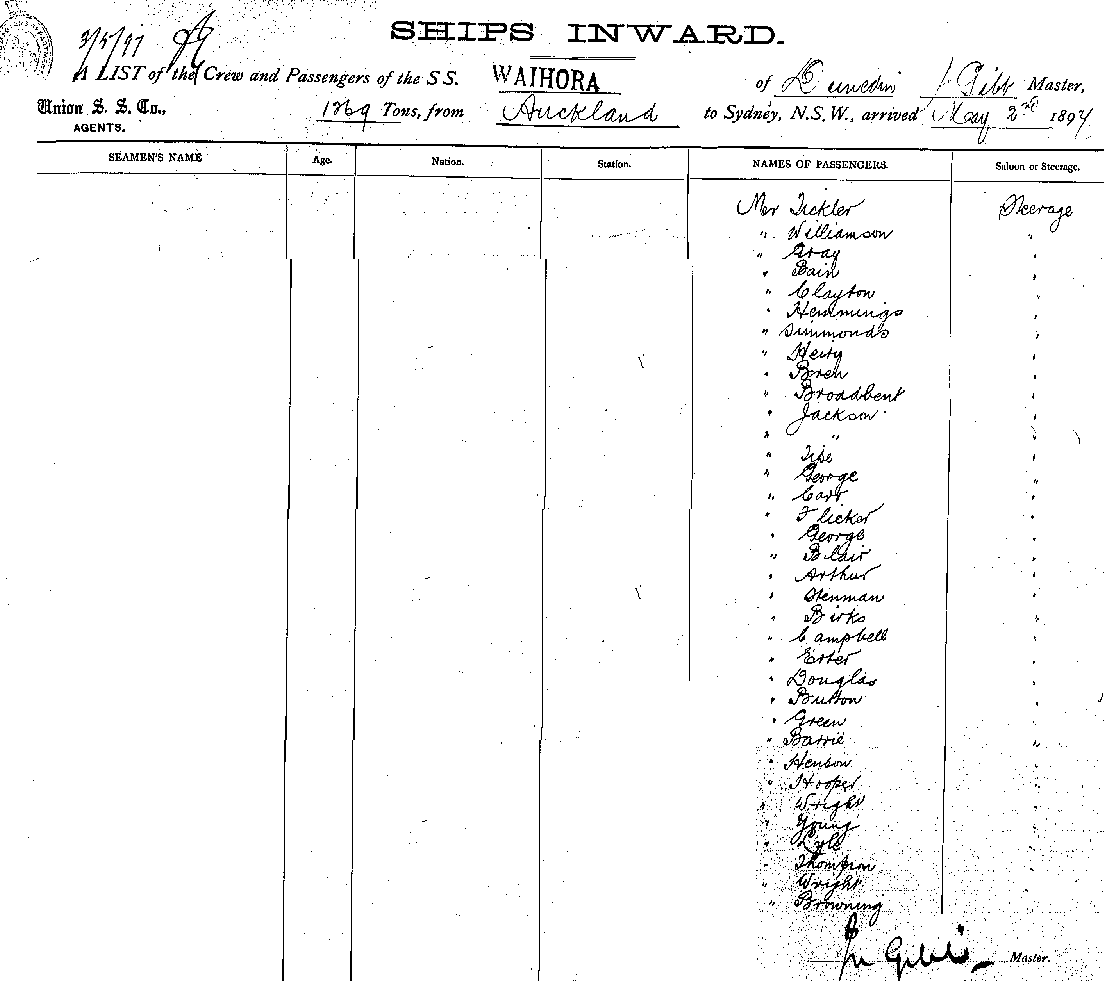 3/5/97
SHIPS INWARD.
A LIST of the Crew and Passengers of the S S. WAIHORA of Dunedin J Gibb Master,
Union S. S. Co., 1269 Tons, from Auckland to Sydney, N.S.W., arrived May 2nd 1897
AGENTS.
SEAMEN'S NAME Age. Nation. Station. NAMES OF PASSENGERS. Saloon or Steerage.
Mr Tickler Steerage
" Williamson "
" Gray "
" Bain "
" Clayton "
" Hemmings "
" Simmonds "
" "
" Breen "
" Broadbent "
" Jackson "
" " "
" "
" George "
" Carr "
" Flicker "
" George "
" Blair "
" Arthur "
" Stenman "
" Birks "
" Campbell "
" Ester "
" Douglas "
" Button "
" Green "
" Barrie "
" Henson "
" Hooper "
" Wright "
" Young "
" Lyle "
" Thompson "
" Wright "
" Browning "
Jn Gibb Master.